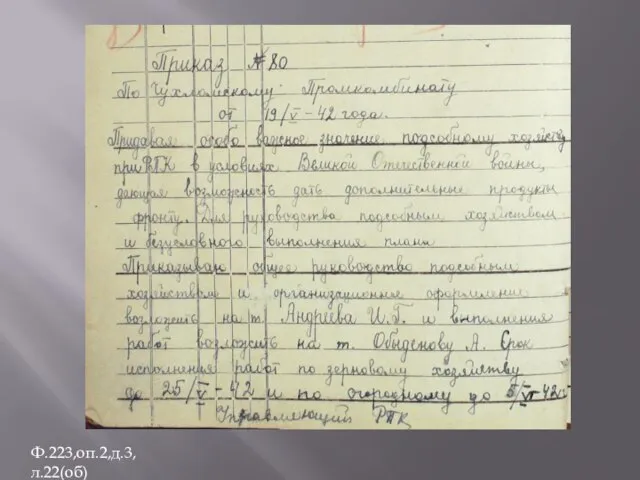 Приказ №80
По Чухломскому Промкомбинату
от 19/V-42 года.
Придавая особо важное значение подсобному хозяйству
при РПК в условиях Великой Отечественной войны,
дающая возможность дать дополнительные продукты
фронту. Для руководства подсобным хозяйством
и безусловного выполнения плана
Приказываю общее руководство подсобным
хозяйством и организационное оформление
возложить на т. Андреева И.П. и выполнения
работ возложить на т. Обыденову А. Срок
исполнения работ по зерновому хозяйству
до 25/V-42 и по огородному до 5/VI-42г
Управляющий РПК
Ф.223,оп.2,д.3,
л.22(об)